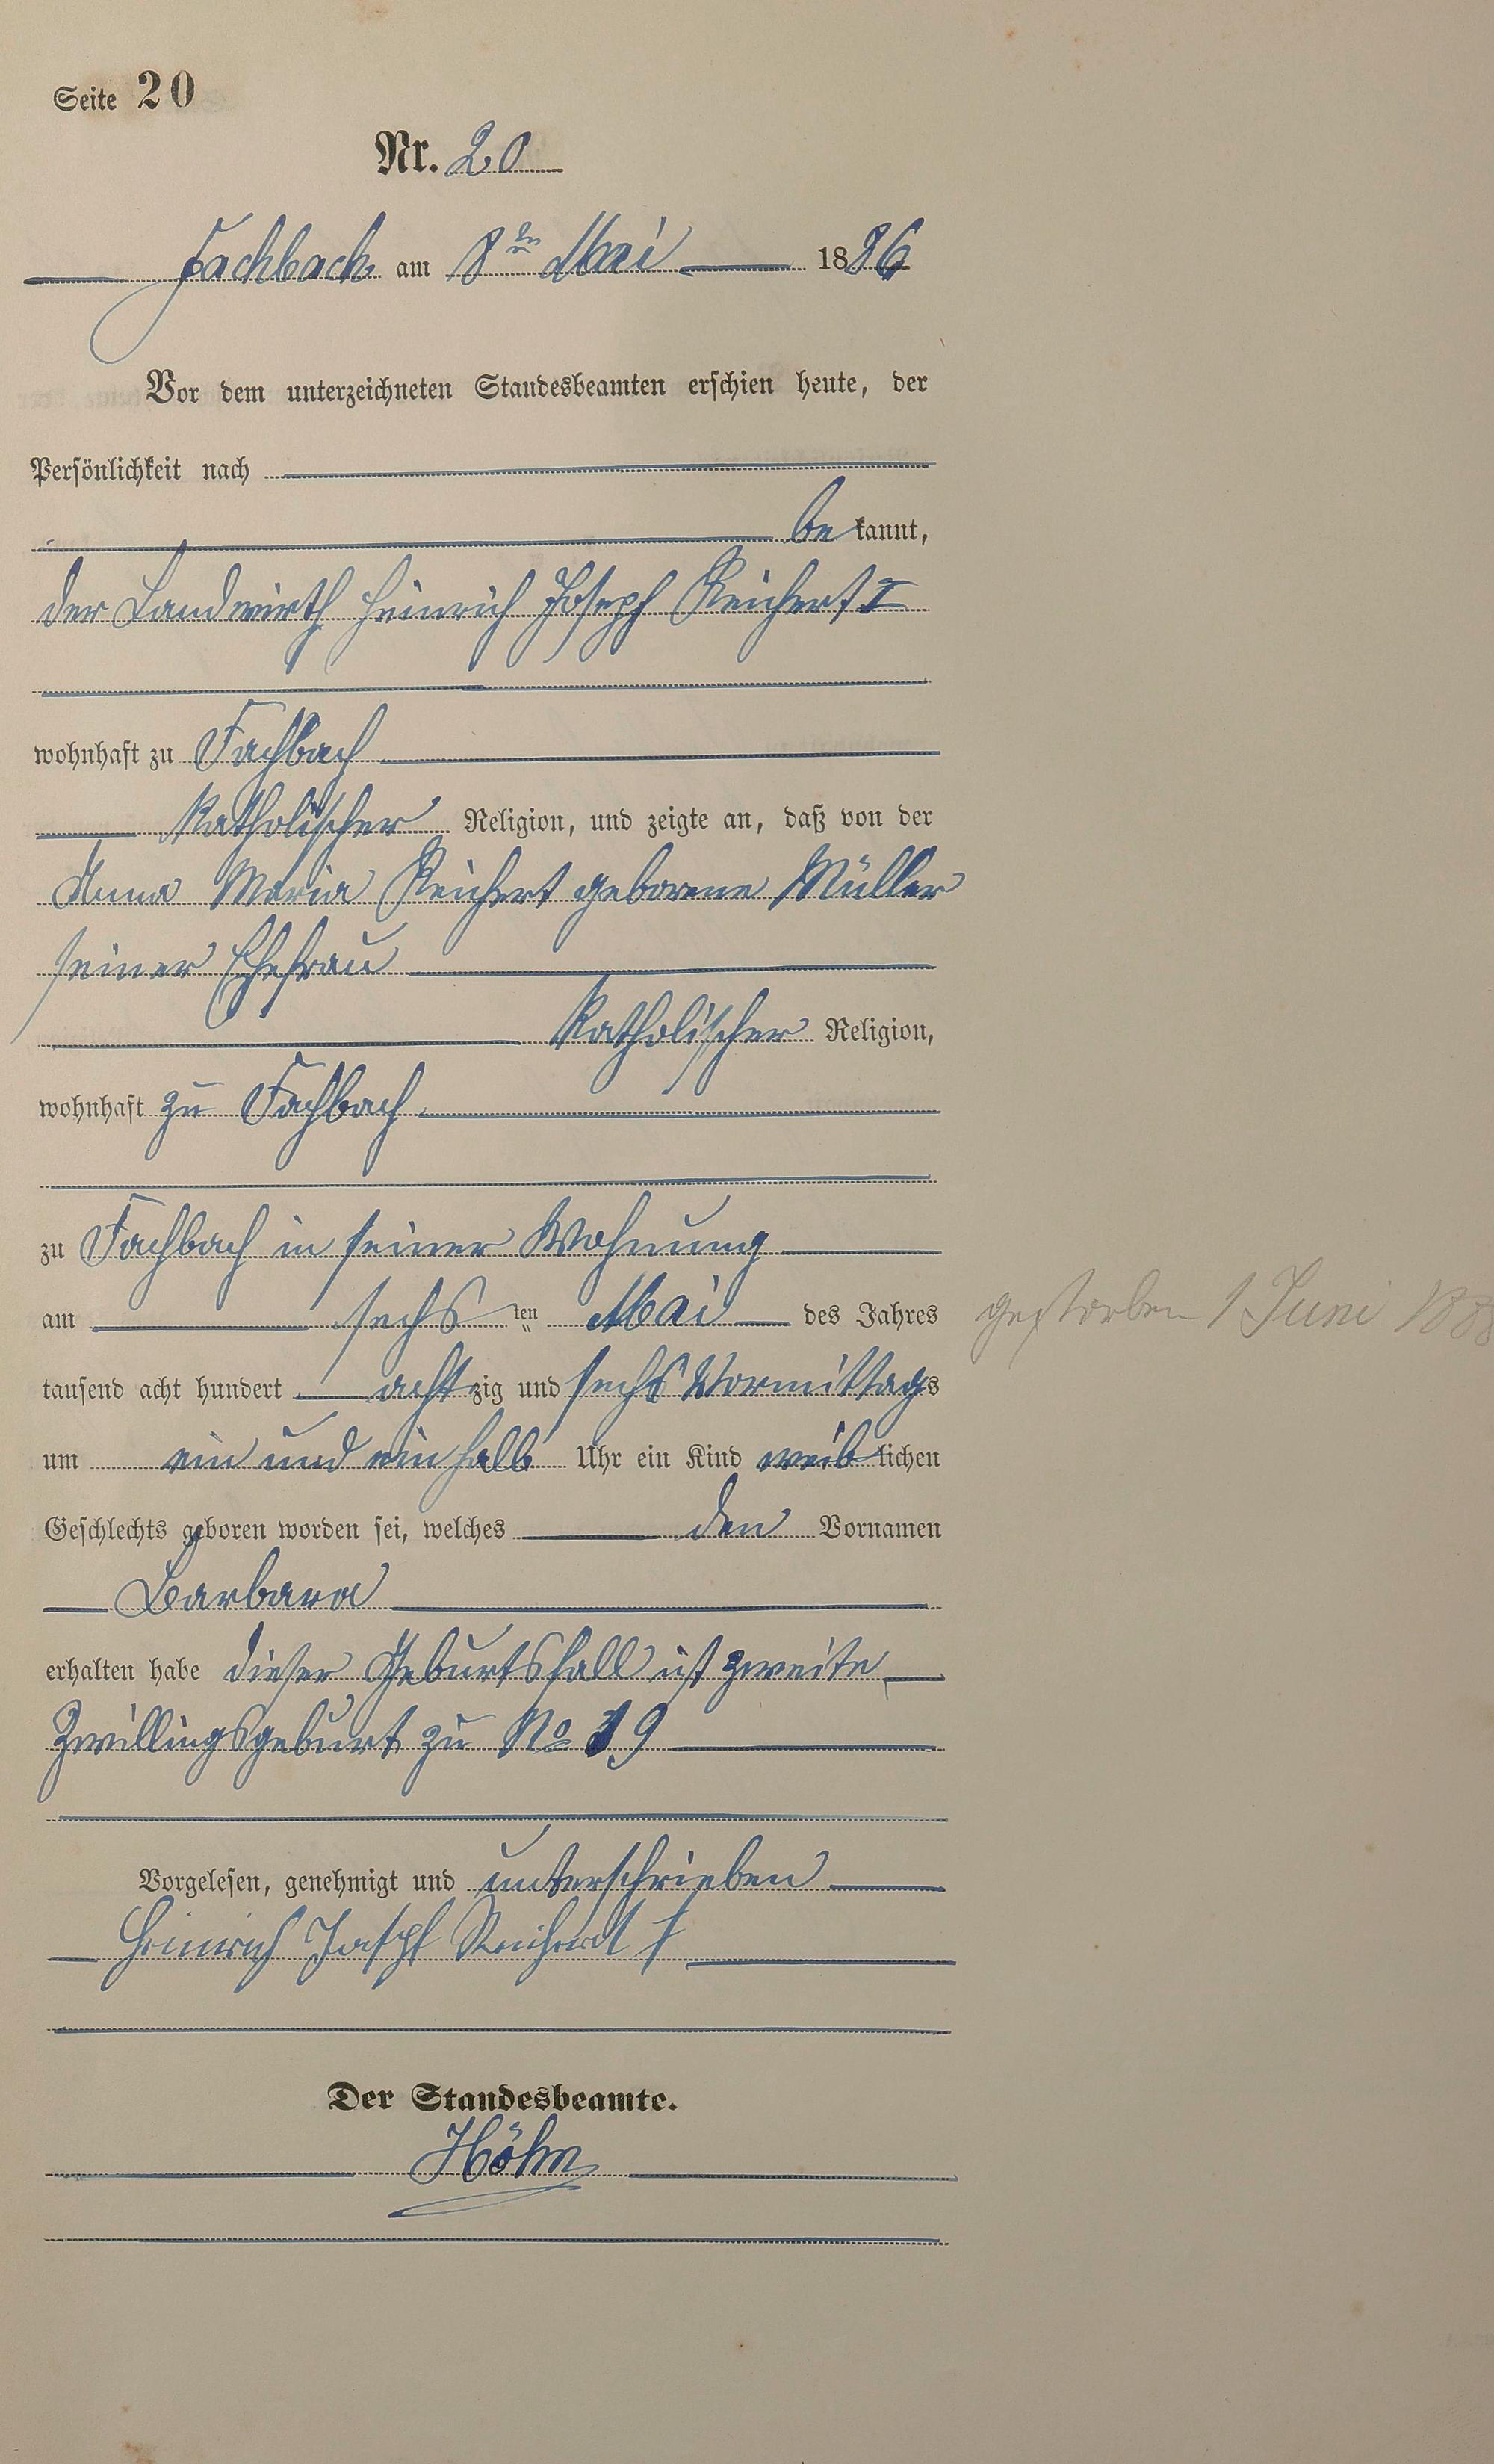 Seite 20
Nr. 20
Fachbach am 8ten Mai 1886
Vor dem unterzeichneten Standesbeamten erschien heute, der
Persönlichkeit nach
bekannt,
der Landwirth Heinrich Joseph Reichert I
wohnhaft zu Fachbach
Katholischer Religion, und zeigte an, daß von der
Anna Maria Reichert geborene Müller
seiner Ehefrau
Katholischer Religion,
wohnhaft zu Fachbach
zu Fachbach in seiner Wohnung
am sechs ten Mai des Jahres
gestorben 1 Juni
tausend acht hundert achtzig und sechs Vormittags
um ein und ein halb Uhr ein Kind weiblichen
Geschlechts geboren worden sei, welches den Vornamen
Barbara
erhalten habe dieser Geburtsfall ist zweite
Zwillingsgeburt zu No 19
Vorgelesen, genehmigt und unterschrieben
Heinrich Joseph
Der Standesbeamte.
Höhn